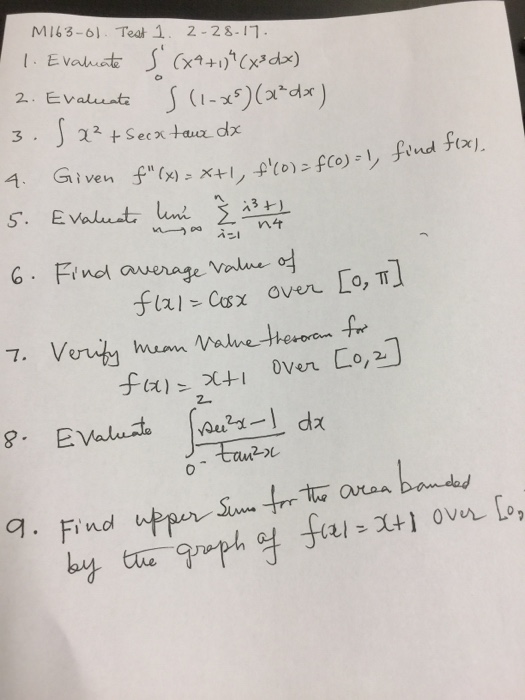 M163-01. Test 1. 2-28-17.
1. Evaluate ∫₀¹ (x⁴+1)⁴ (x³dx)
2. Evaluate ∫ (1-x⁵)(x²dx)
3. ∫ x² + Secx taux dx
4. Given f"(x) = x+1, f'(0) = f(0) = 1, find f(x).
5. Evaluate lim n→∞ Σ i=1 n i³+1 / n4
6. Find average value of
f(x) = Cosx over [0, π]
7. Verify mean Value theoram for
f(x) = x+1 over [0,2]
8. Evaluate ∫₀² sec²x-1 / tan²x dx
9. Find upper Sum for the area bounded
by the graph of f(x) = x+1 over [0,